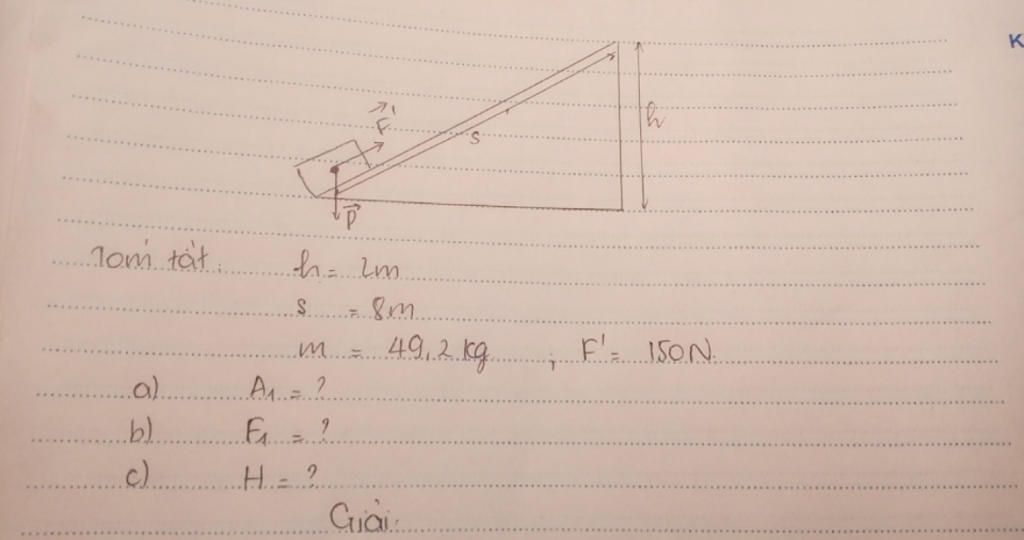 K
F'
h
s
P
Tóm tắt:
h = 2m
s = 8m
m = 49,2 kg , F' = 150N.
a) A₁ = ?
b) F₁ = ?
c) H = ?
Giải: